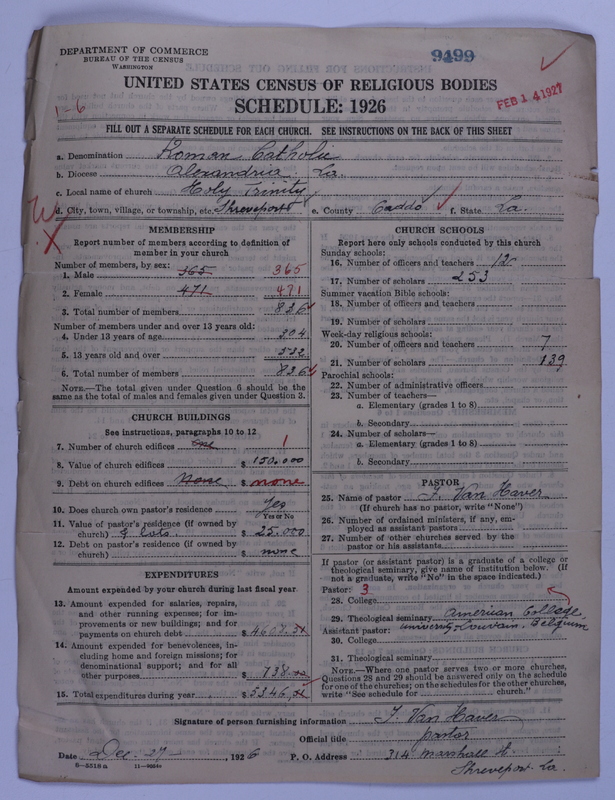 DEPARTMENT OF COMMERCE
BUREAU OF THE CENSUS
WASHINGTON
9499
UNITED STATES CENSUS OF RELIGIOUS BODIES
SCHEDULE: 1926
FEB 14 1927
1-6
FILL OUT A SEPARATE SCHEDULE FOR EACH CHURCH. SEE INSTRUCTIONS ON THE BACK OF THIS SHEET
a. Denomination Roman Catholic
b. Diocese Alexandria La.
c. Local name of church Holy Trinity
d. City, town, village, or township, etc. Shreveport e. County Caddo f. State La.
MEMBERSHIP
Report number of members according to definition of member in your church
Number of members, by sex:
1. Male 365 365
2. Female 471 471
3. Total number of members 836
Number of members under and over 13 years old:
4. Under 13 years of age 304
5. 13 years old and over 532
6. Total number of members 836
NOTE.—The total given under Question 6 should be the same as the total of males and females given under Question 3.
CHURCH BUILDINGS
See instructions, paragraphs 10 to 12
7. Number of church edifices One 1
8. Value of church edifices $ 150.000
9. Debt on church edifices None $ none
10. Does church own pastor's residence Yes
Yes or No
11. Value of pastor's residence (if owned by church) lots. $ 25.000
12. Debt on pastor's residence (if owned by church) $ none
EXPENDITURES
Amount expended by your church during last fiscal year
13. Amount expended for salaries, repairs, and other running expense; for improvements or new buildings; and for payments on church debt $
14. Amount expended for benevolences, including home and foreign missions; for denominational support; and for all other purposes $ 738.
15. Total expenditures during year $ 5346.
CHURCH SCHOOLS
Report here only schools conducted by this church
Sunday schools:
16. Number of officers and teachers 12
17. Number of scholars 253
Summer vacation Bible schools:
18. Number of officers and teachers
19. Number of scholars
Week-day religious schools:
20. Number of officers and teachers 7
21. Number of scholars 139
Parochial schools:
22. Number of administrative officers
23. Number of teachers—
a. Elementary (grades 1 to 8)
b. Secondary
24. Number of scholars—
a. Elementary (grades 1 to 8)
b. Secondary
PASTOR
25. Name of pastor J. Van Haver
(If church has no pastor, write "None")
26. Number of ordained ministers, if any, employed as assistant pastors
27. Number of other churches served by the pastor or his assistants
If pastor (or assistant pastor) is a graduate of a college or theological seminary, give name of institution below. (If not a graduate, write "No" in the space indicated.)
Pastor: 3
28. College
29. Theological seminary American College
Assistant pastor: University Louvain, Belgium
30. College
31. Theological seminary
NOTE.—Where one pastor serves two or more churches, Questions 28 and 29 should be answered only on the schedule for one of the churches; on the schedules for the other churches, write "See schedule for church."
Signature of person furnishing information J. Van Haver
Official title pastor
Date Dec. 27 1926 P. O. Address 314 Marshall st.
6—5518a 11—9059
Shreveport La.